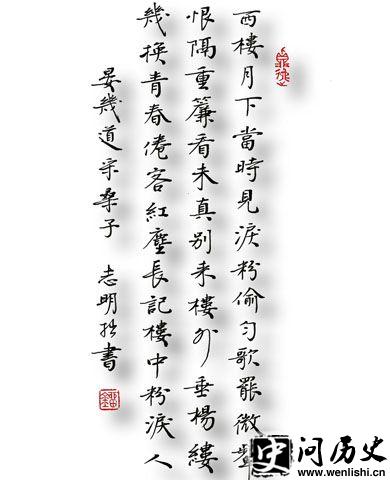 西樓月下當時見淚粉偷勻歌罷微顰
恨隔重簾看未真別來樓外垂楊縷
幾換青春倦客紅塵長記樓中粉淚人
晏幾道采桑子 志明拙書
史 问历史
www.wenlishi.cn